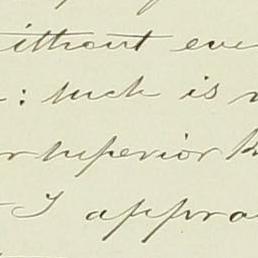 without eve
: such is
superior
I appro